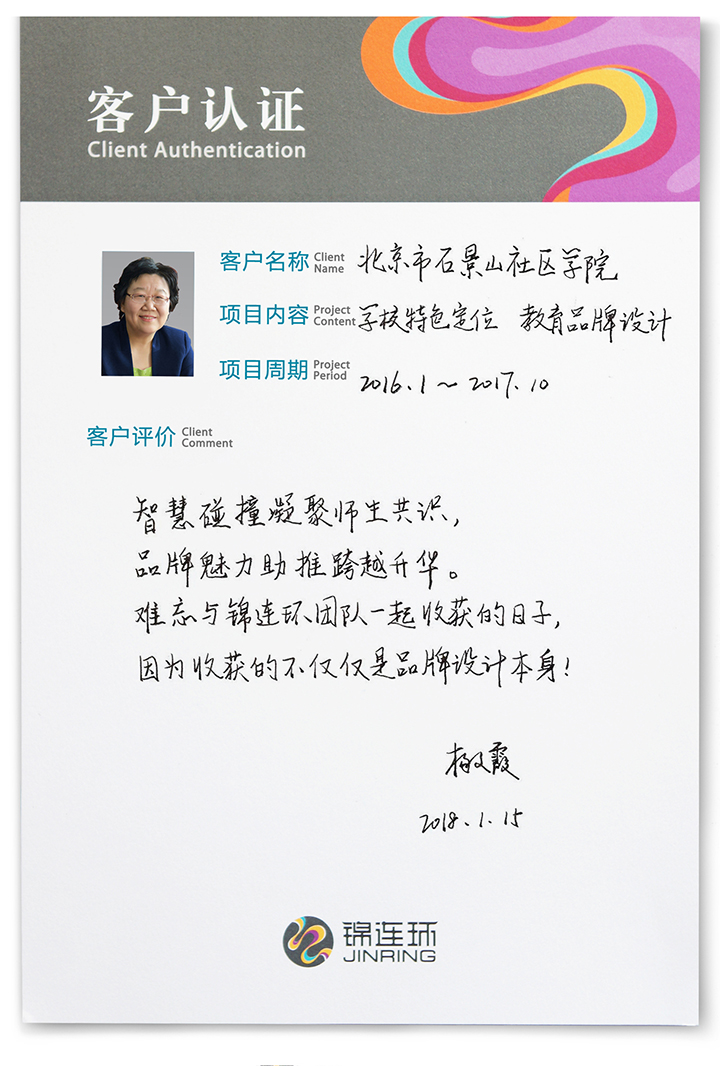 客户认证
Client Authentication
客户名称 Client Name 北京市石景山社区学院
项目内容 Project Content 学校特色定位 教育品牌设计
项目周期 Project Period 2016.1～2017.10
客户评价 Client Comment
智慧碰撞凝聚师生共识，
品牌魅力助推跨越升华。
难忘与锦连环团队一起收获的日子，
因为收获的不仅仅是品牌设计本身！
霞
2018.1.15
锦连环
JINRING